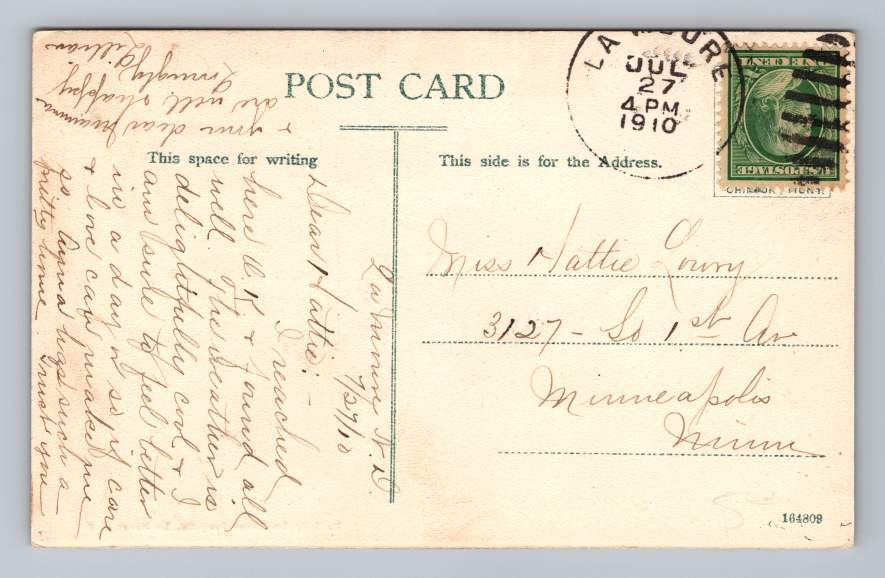 POST CARD
This space for writing
This side is for the Address.
LA MOURE
JUL
27
4 PM
1910
ONE CENT
U.S. POSTAGE
Miss Hattie Lowry
3127 - So 1st Av
Minneapolis
Minn
164809
La Moure N. D.
7/27/10
Dear Hattie: -
I reached
here O. K. & found all
well. The weather is
delightfully cool, & I
am sure to feel better
in a day or so if care
& love can make me
so. Anna has such a
pretty home. Trust you
& your dear mamma
are well & happy
Lovingly
Lillian